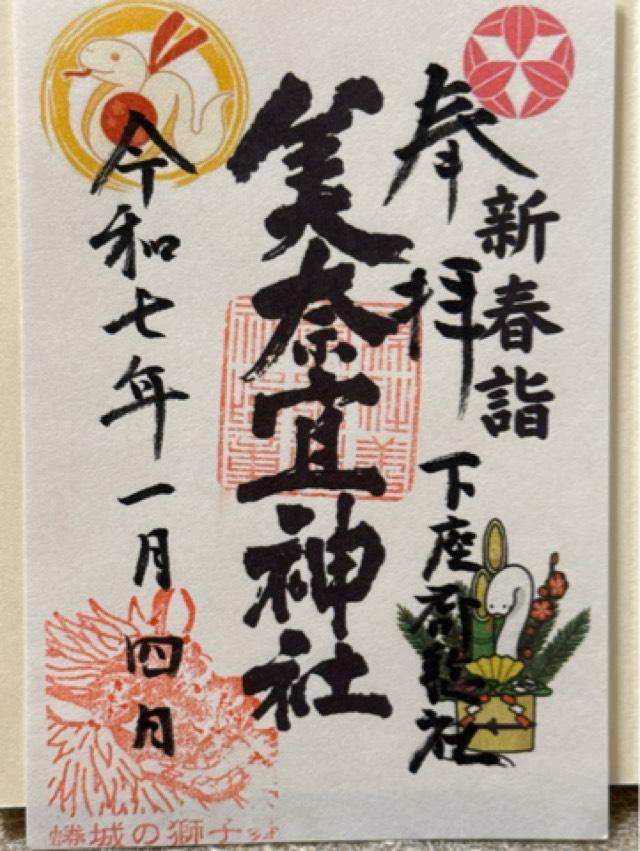 新春詣
奉拝
下座郡総社
美奈宜神社
令和七年一月四日
蜷城の獅子